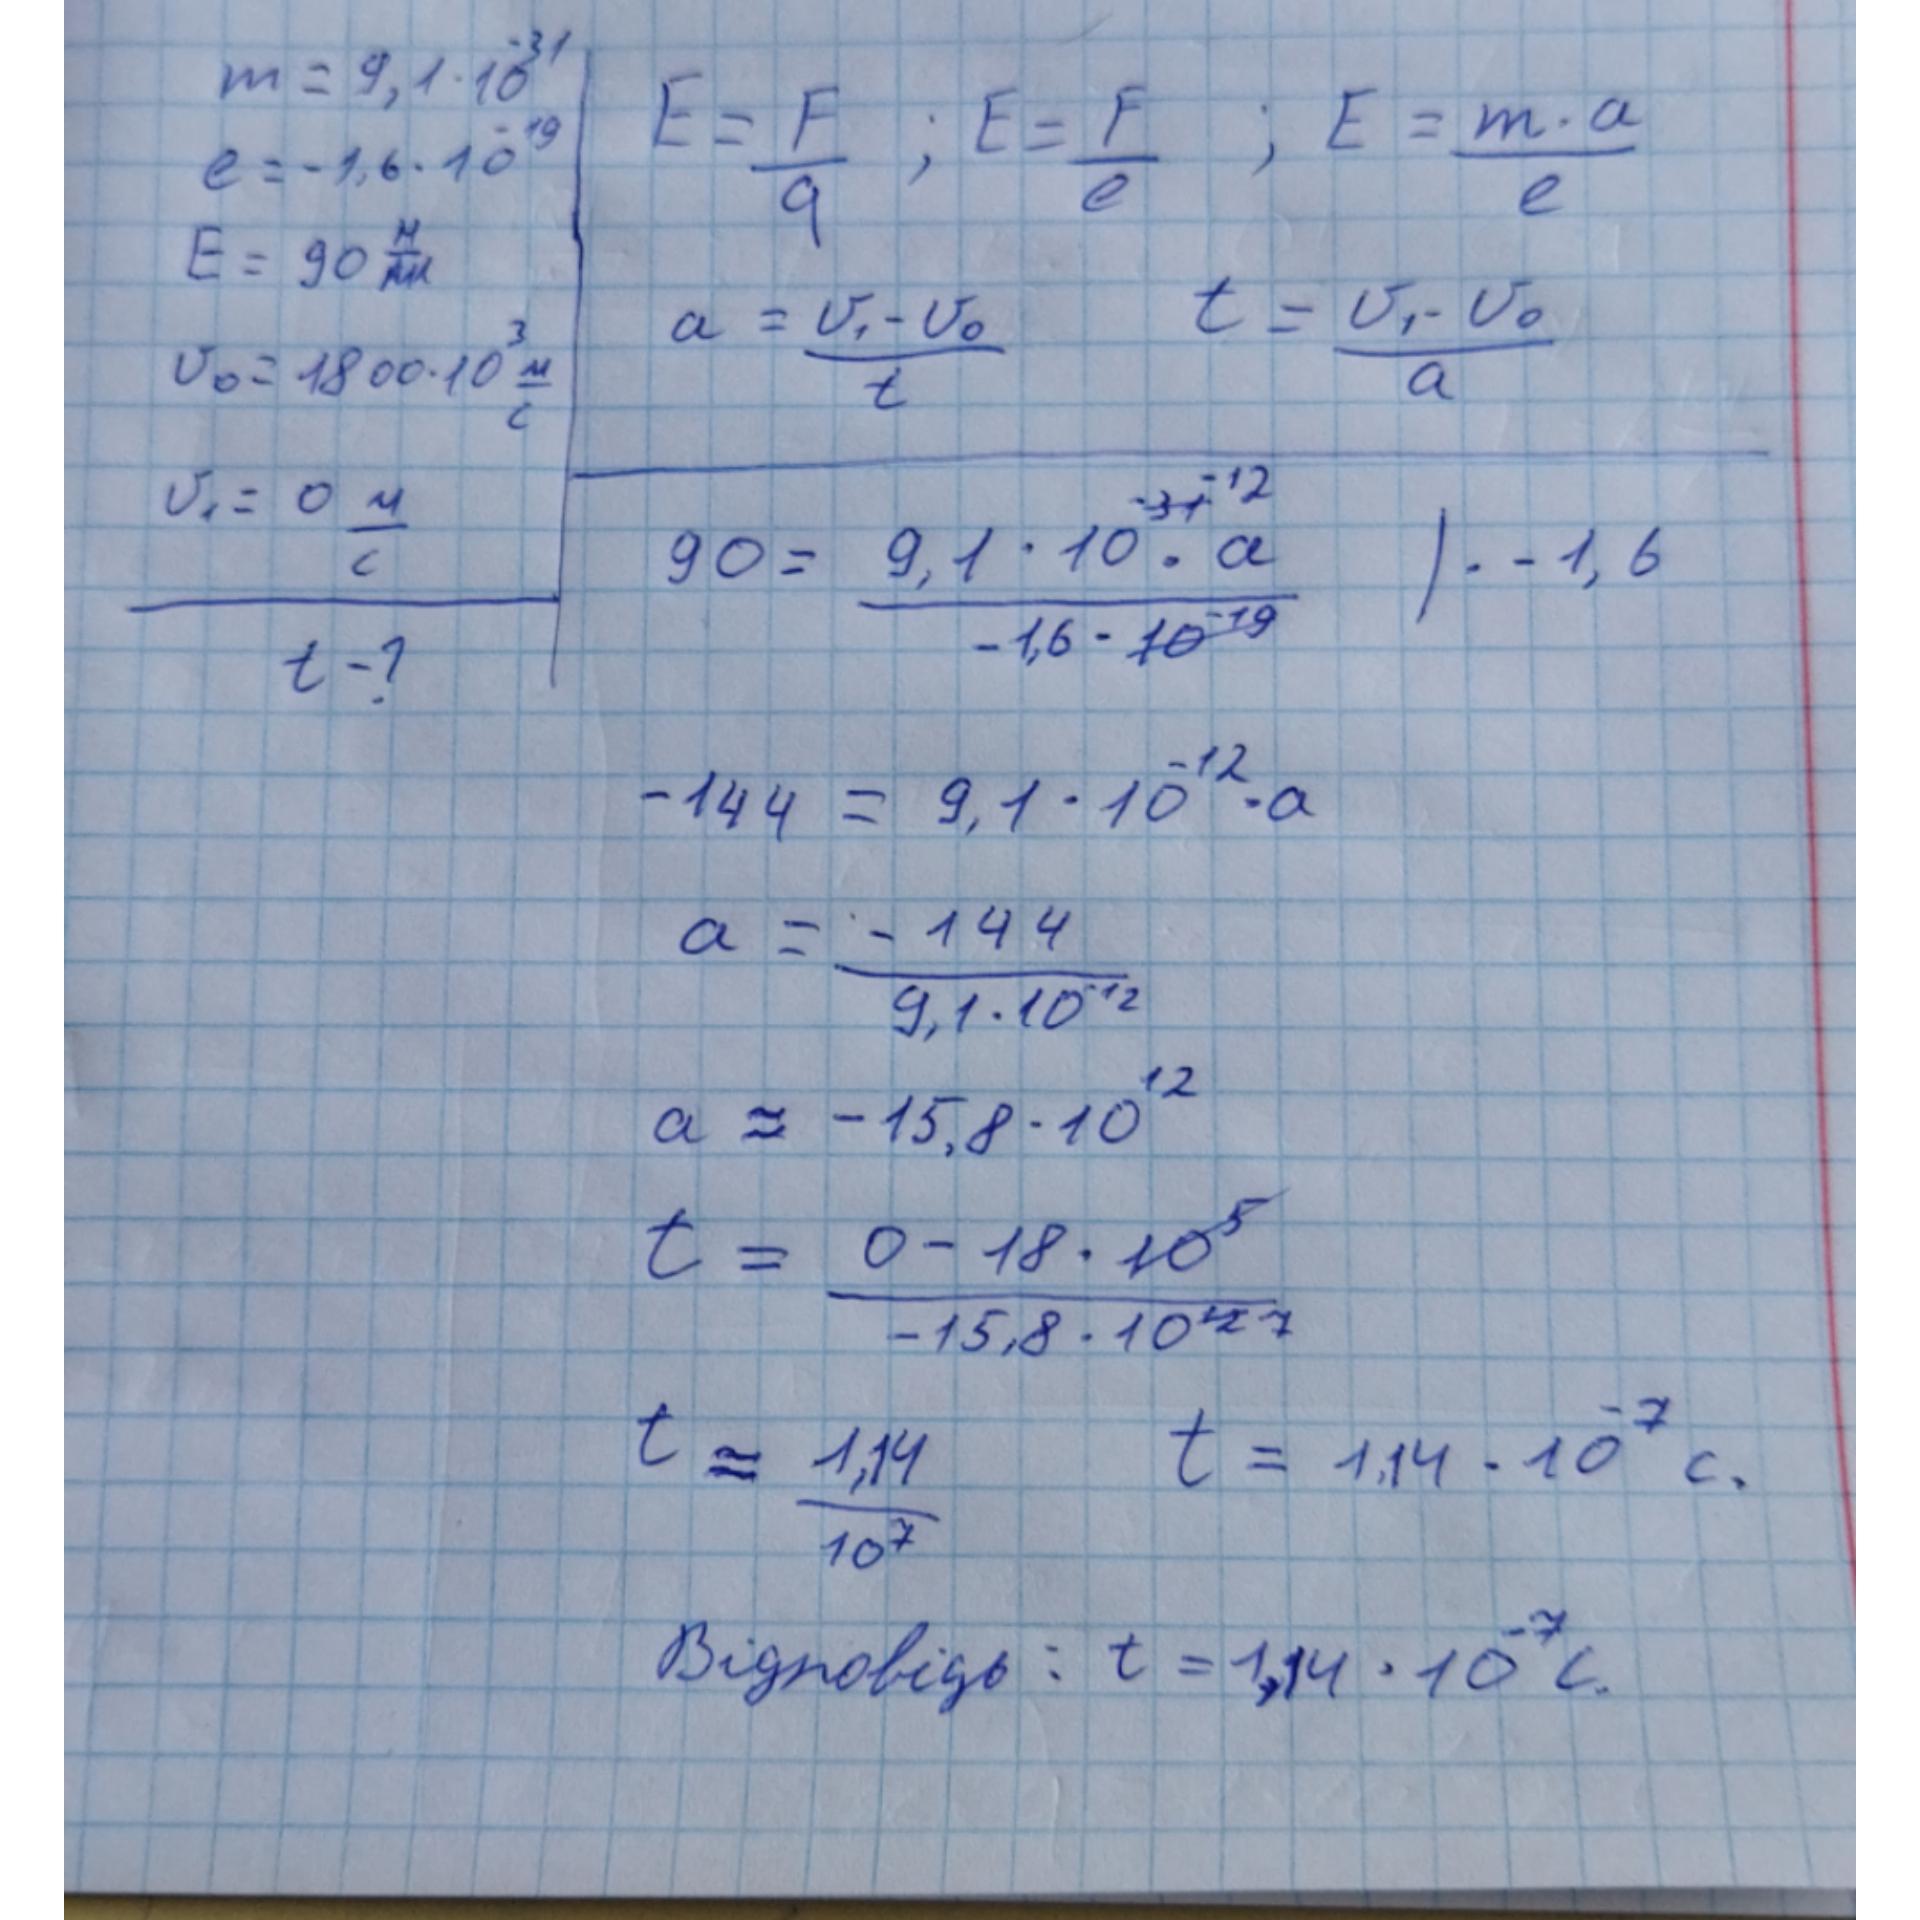 m = 9,1·10⁻³¹
e = -1,6·10⁻¹⁹
E = 90
v₀ = 1800·10³ м/с
v₁ = 0 м/с
t - ?
E = F/q ; E = F/e ; E = m·a/e
a = v₁ - v₀/t t = v₁ - v₀/a
90 = 9,1·10⁻¹²·a/-1,6·10⁻¹⁹ |·-1,6
-144 = 9,1·10⁻¹²·a
a = -144/9,1·10⁻¹²
a ≈ -15,8·10¹²
t = 0 - 18·10⁵/-15,8·10⁷
t ≈ 1,14/10⁷ t = 1,14·10⁻⁷ с.
Відповідь: t = 1,14·10⁻⁷ с.